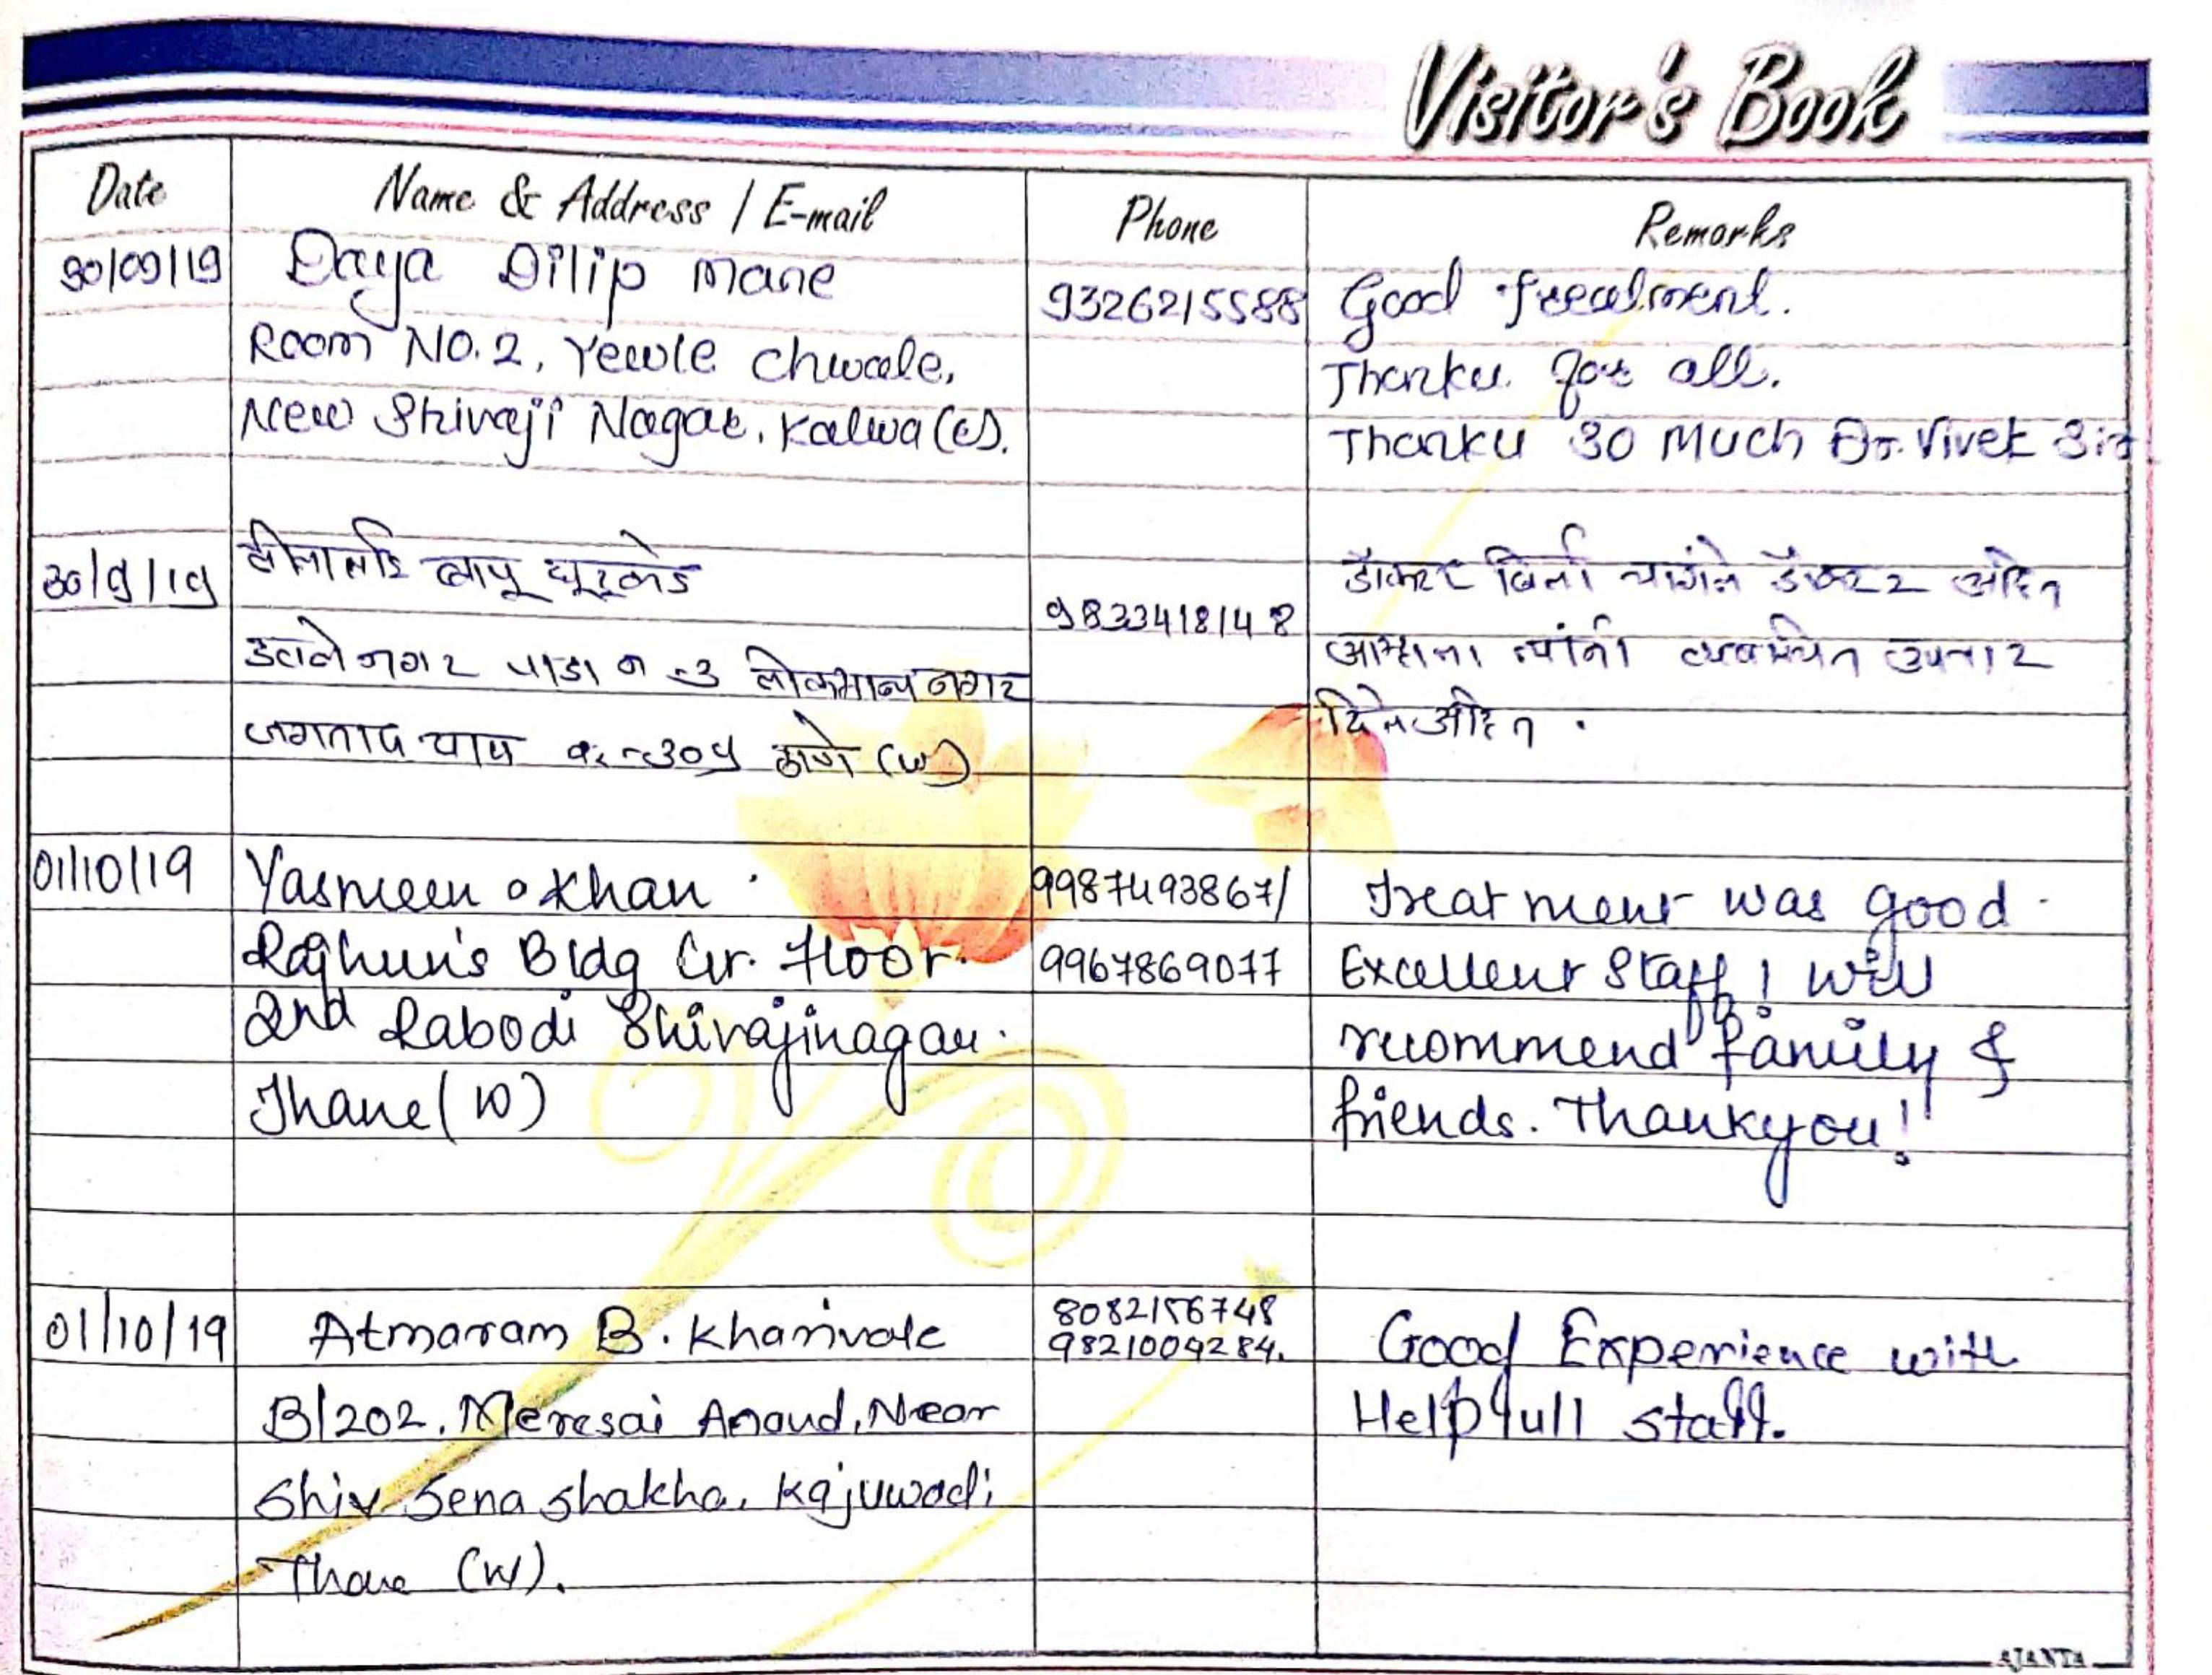 Visitor's Book
Date Name & Address / E-mail Phone Remarks
30/09/19 Daya Dilip Mane 9326215588 Good treatment.
Room NO.2, Yewle Chwale, Thanku for all.
New Shivaji Nagar, Kalwa (E). Thanku so Much Dr. Vivek Sir
30/9/19 बापू 9833418148 डॉक्टर चांगले डॉक्टर आहेत
नगर पाडा नं -3 लोकमान्य नगर आम्हाला त्यांनी व्यवस्थित उपचार
जगताप चाळ ठाणे (W) दिले आहेत.
01/10/19 Yasmeen Khan. 9987493867/ Treatment was good.
Bldg Gr. Floor. 9967869077 Excellent Staff! Will
2nd Rabodi Shivajinagar. recommend family &
Thane (W) friends. Thankyou!
01/10/19 Atmaram B. Kharivale 8082156748 Good Experience with
9821009284.
B/202, Meresai Anand, Near Helpfull staff.
Shiv Sena Shakha, Kajuwadi
Thane (W).
AJANTA